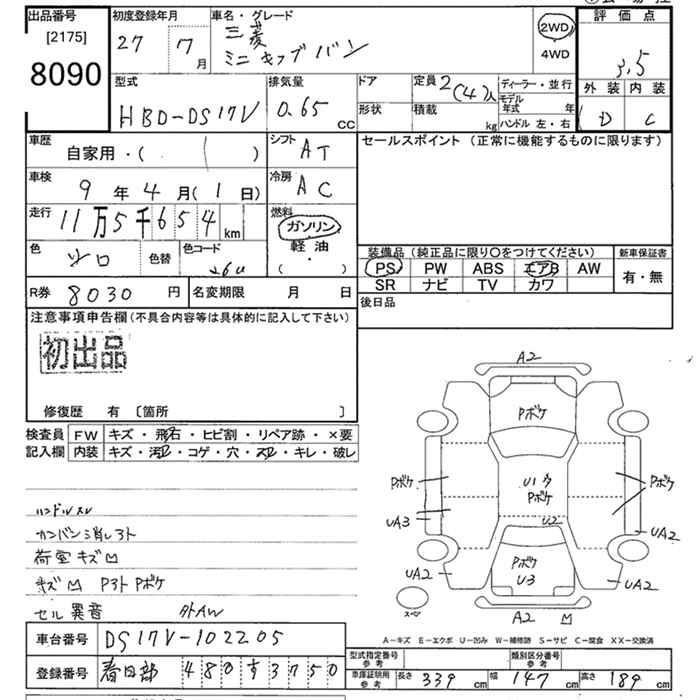 出品番号
[2175]
8090
初度登録年月
27 7月
車名・グレード
三菱
ミニキャブバン
2WD
4WD
評価点
3.5
外装 内装
D C
型式
HBD-DS17V
排気量
0.65 CC
ドア
形状
定員 2(4)人
積載 kg
ディーラー・並行
モデル年式 年
ハンドル 左・右
車歴
自家用・( )
シフト AT
セールスポイント (正常に機能するものに限ります)
車検
9年4月(1日)
冷房 AC
走行
11万5千654km
燃料
ガソリン
軽油
( ・ )
色
シロ
色替
色コード
26U
装備品 (純正品に限り○をつけてください)
新車保証書
PS PW ABS エアB AW
SR ナビ TV カワ
有・無
R券 8030円
名変期限 月 日
後日品
注意事項申告欄(不具合内容等は具体的に記入して下さい)
初出品
修復歴 有 〔箇所 〕
検査員記入欄
FW キズ・飛石・ヒビ割・リペア跡・×要
内装 キズ・汚レ・コゲ・穴・スレ・キレ・破レ
ハンドルスレ
カンバン消しヨト
荷室キズ凹
キズ凹 Pヨト Pボケ
セル異音 外AW
A2
Pボケ
Pボケ
Pボケ
U1
Pボケ
UA3
U2
UA2
UA2
Pボケ
U3
UA2
A2 凹
スペア
A-キズ E-エクボ U-凹み W-補修跡 S-サビ C-腐食 XX-交換済
車台番号 DS17V-102205
登録番号 春日部 480す3750
型式指定番号 参考
類別区分番号 参考
車庫証明用 参考
長さ 339cm 幅 147cm 高さ 189cm